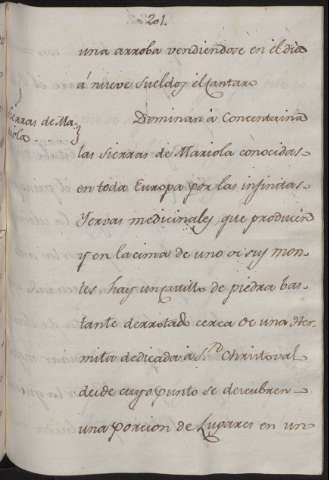 201.
una arroba vendiendose en el dia
á nueve sueldos el cantaro
Sierras de Ma-
riola.
Dominan á Concentaina
las sierras de Mariola conocidas
en toda Europa por las infinitas
Yervas medicinales que producen
y en la cima de uno de sus mon-
tes hay un castillo de piedra bas-
tante derrotado cerca de una Her-
mita dedicada á Sn. Christoval
desde cuyo punto se descubren
una porcion de Lugares en un